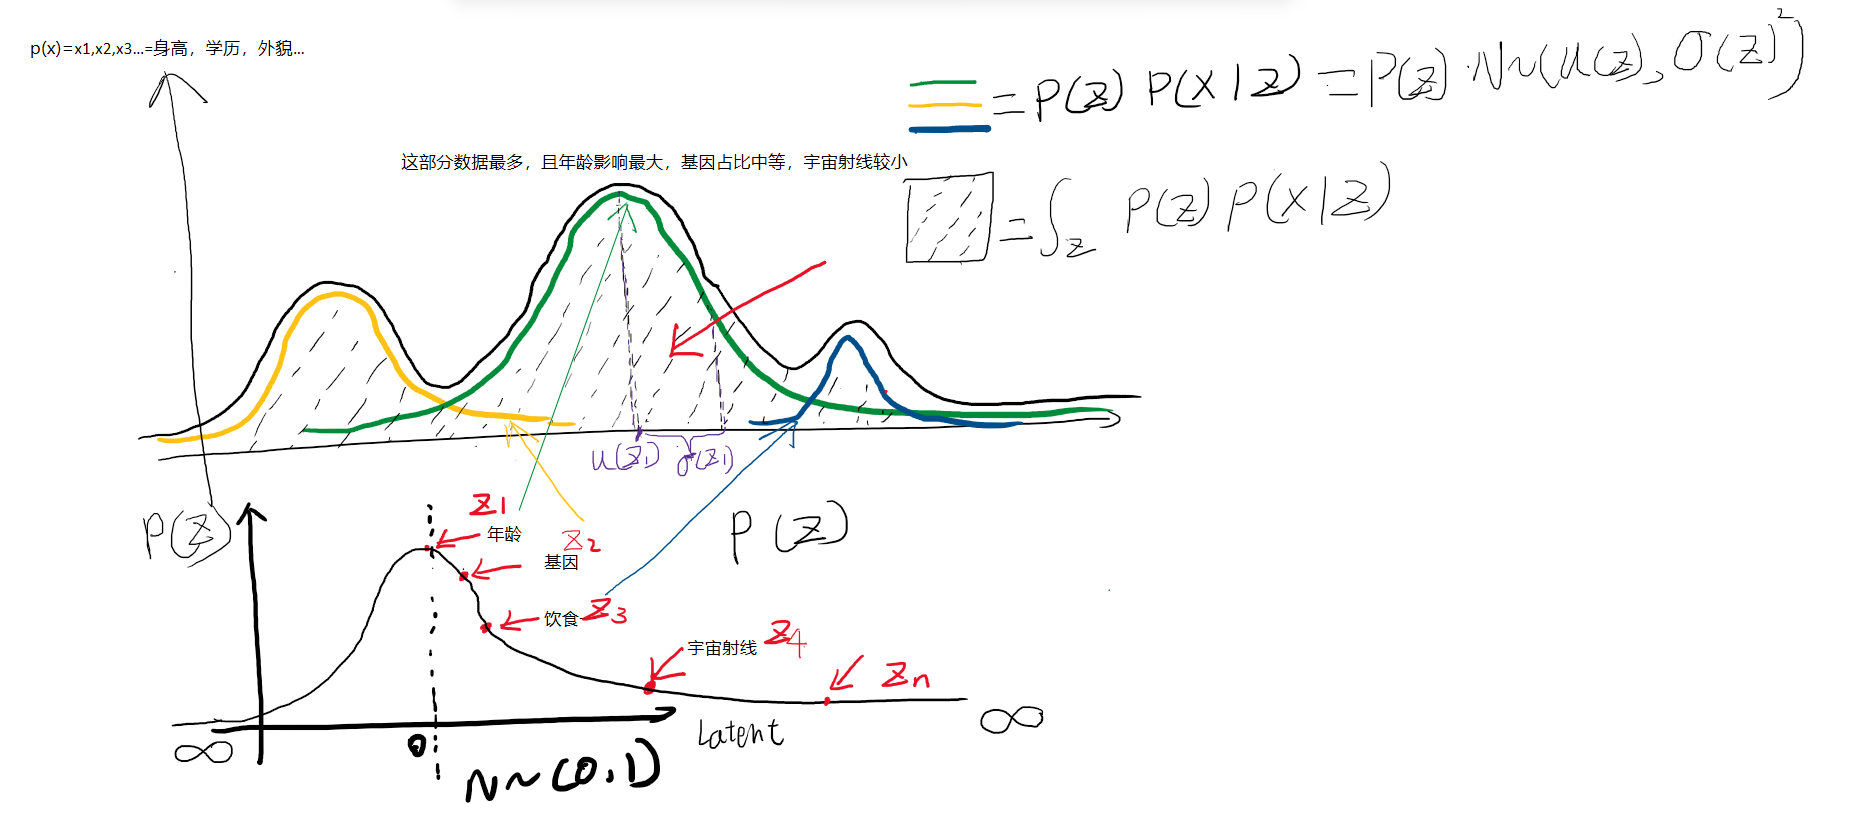 p(x)=x1,x2,x3...=身高，学历，外貌...
= P(z) P(x|z) = P(z) · N~(u(z), σ(z)²)
这部分数据最多，且年龄影响最大，基因占比中等，宇宙射线较小
= ∫z P(z) P(x|z)
u(z1) σ(z1)
P(z)
z1
年龄
z2
基因
P(z)
饮食 z3
宇宙射线 z4
zn
∞
Latent
∞
0
N~(0,1)